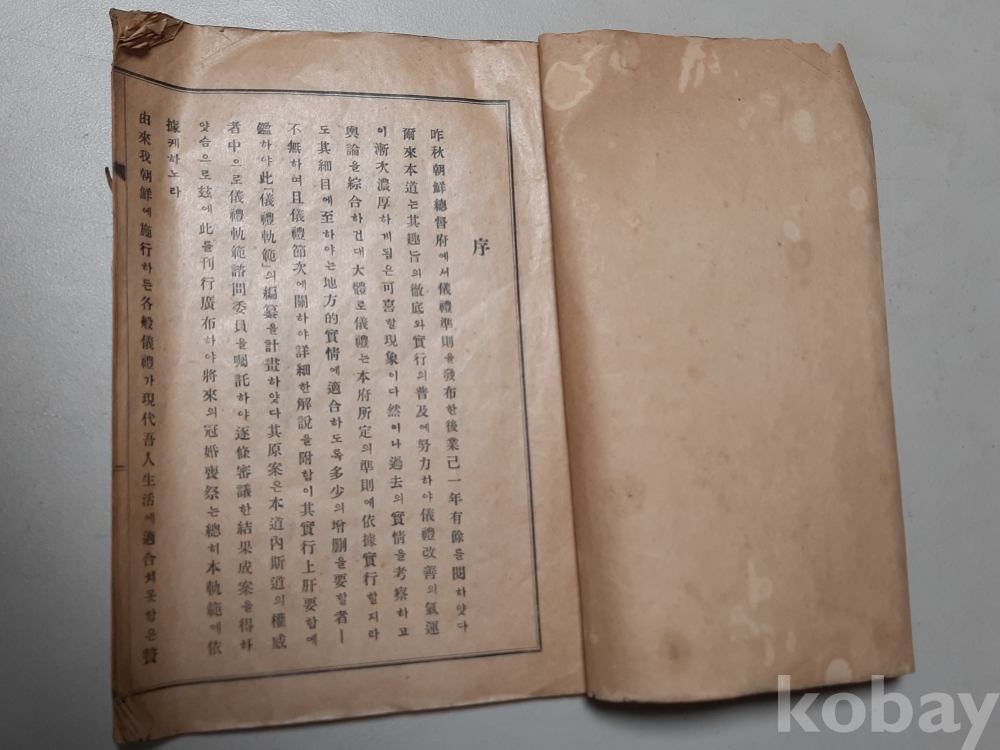 序
昨秋朝鮮總督府에서儀禮準則을發布한後業己一年有餘를閱하얏다
爾來本道는其趣旨의徹底와實行의普及에努力하야儀禮改善의氣運
이漸次濃厚하게됨은可喜할現象이다然이나過去의實情을考察하고
輿論을綜合하건대大體로儀禮는本府所定의準則에依據實行할지라
도其細目에至하야는地方的實情에適合하도록多少의增刪을要할者ㅣ
不無하며且儀禮節次에關하야詳細한解說을附함이其實行上肝要함에
鑑하야此「儀禮軌範」의編纂을計畫하얏다其原案은本道內斯道의權威
者中으로儀禮軌範諮問委員을囑託하야逐條審議한結果成案을得하
얏슴으로玆에此를刊行廣布하야將來의冠婚喪祭는總히本軌範에依
據케하노라
由來我朝鮮에施行하든各般儀禮가現代吾人生活에適合치못함은贅
kobay